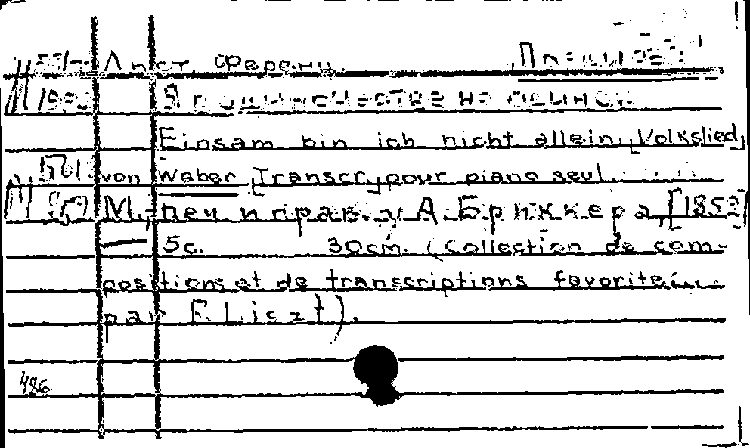 Лист, Ференц.
Я в одиночестве не одинок.
Einsam bin ich nicht allein, [Volkslied]
von Weber, Transcr. pour piano seul.
М., печ. и грав. у А. Бриккера, [1852]
5с. 30cm. (Collection de com-
positions et de transcriptions favorite
par F. Liszt).
486